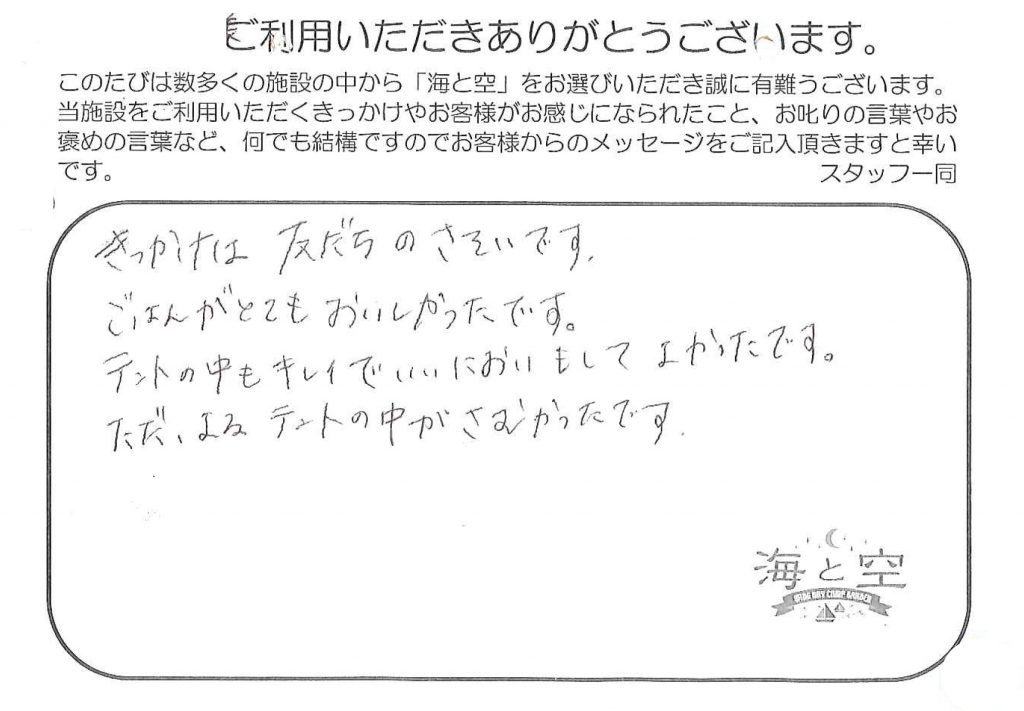 ご利用いただきありがとうございます。
このたびは数多くの施設の中から「海と空」をお選びいただき誠に有難うございます。
当施設をご利用いただくきっかけやお客様がお感じになられたこと、お叱りの言葉やお
褒めの言葉など、何でも結構ですのでお客様からのメッセージをご記入頂きますと幸い
です。
スタッフ一同
きっかけは 友だちのさそいです.
ごはんがとてもおいしかったです。
テントの中もキレイでいいにおいもしてよかったです。
ただ、よる テントの中がさむかったです.
海と空
CAMP GARDEN